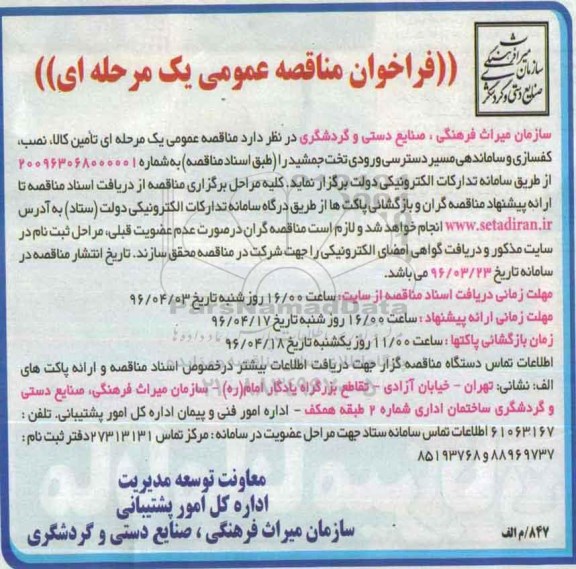 سازمان میراث فرهنگی
صنایع دستی و گردشگری
((فراخوان مناقصه عمومی یک مرحله ای))
سازمان میراث فرهنگی ، صنایع دستی و گردشگری در نظر دارد مناقصه عمومی یک مرحله ای تأمین کالا، نصب،
کفسازی و ساماندهی مسیر دسترسی ورودی تخت جمشید را (طبق اسناد مناقصه) به شماره ۲۰۰۹۶۳۰۶۸۰۰۰۰۰۱
از طریق سامانه تدارکات الکترونیکی دولت برگزار نماید. کلیه مراحل برگزاری مناقصه از دریافت اسناد مناقصه تا
ارائه پیشنهاد مناقصه گران و بازگشائی پاکت ها از طریق درگاه سامانه تدارکات الکترونیکی دولت (ستاد) به آدرس
www.setadiran.ir انجام خواهد شد و لازم است مناقصه گران در صورت عدم عضویت قبلی، مراحل ثبت نام در
سایت مذکور و دریافت گواهی امضای الکترونیکی را جهت شرکت در مناقصه محقق سازند. تاریخ انتشار مناقصه در
سامانه تاریخ ۹۶/۰۳/۲۳ می باشد.
مهلت زمانی دریافت اسناد مناقصه از سایت: ساعت ۱۶/۰۰ روز شنبه تاریخ ۹۶/۰۴/۰۳
مهلت زمانی ارائه پیشنهاد : ساعت ۱۶/۰۰ روز شنبه تاریخ ۹۶/۰۴/۱۷
زمان بازگشائی پاکتها : ساعت ۱۱/۰۰ روز یکشنبه تاریخ ۹۶/۰۴/۱۸
اطلاعات تماس دستگاه مناقصه گزار جهت دریافت اطلاعات بیشتر درخصوص اسناد مناقصه و ارائه پاکت های
الف: نشانی: تهران - خیابان آزادی - تقاطع بزرگراه یادگار امام(ره) - سازمان میراث فرهنگی، صنایع دستی
و گردشگری ساختمان اداری شماره ۲ طبقه همکف - اداره امور فنی و پیمان اداره کل امور پشتیبانی. تلفن :
۶۱۰۶۳۱۶۷ اطلاعات تماس سامانه ستاد جهت مراحل عضویت در سامانه : مرکز تماس ۲۷۳۱۳۱۳۱ دفتر ثبت نام :
۸۸۹۶۹۷۳۷ و ۸۵۱۹۳۷۶۸
معاونت توسعه مدیریت
اداره کل امور پشتیبانی
سازمان میراث فرهنگی ، صنایع دستی و گردشگری
۸۴۷/م الف
ParsNamadData